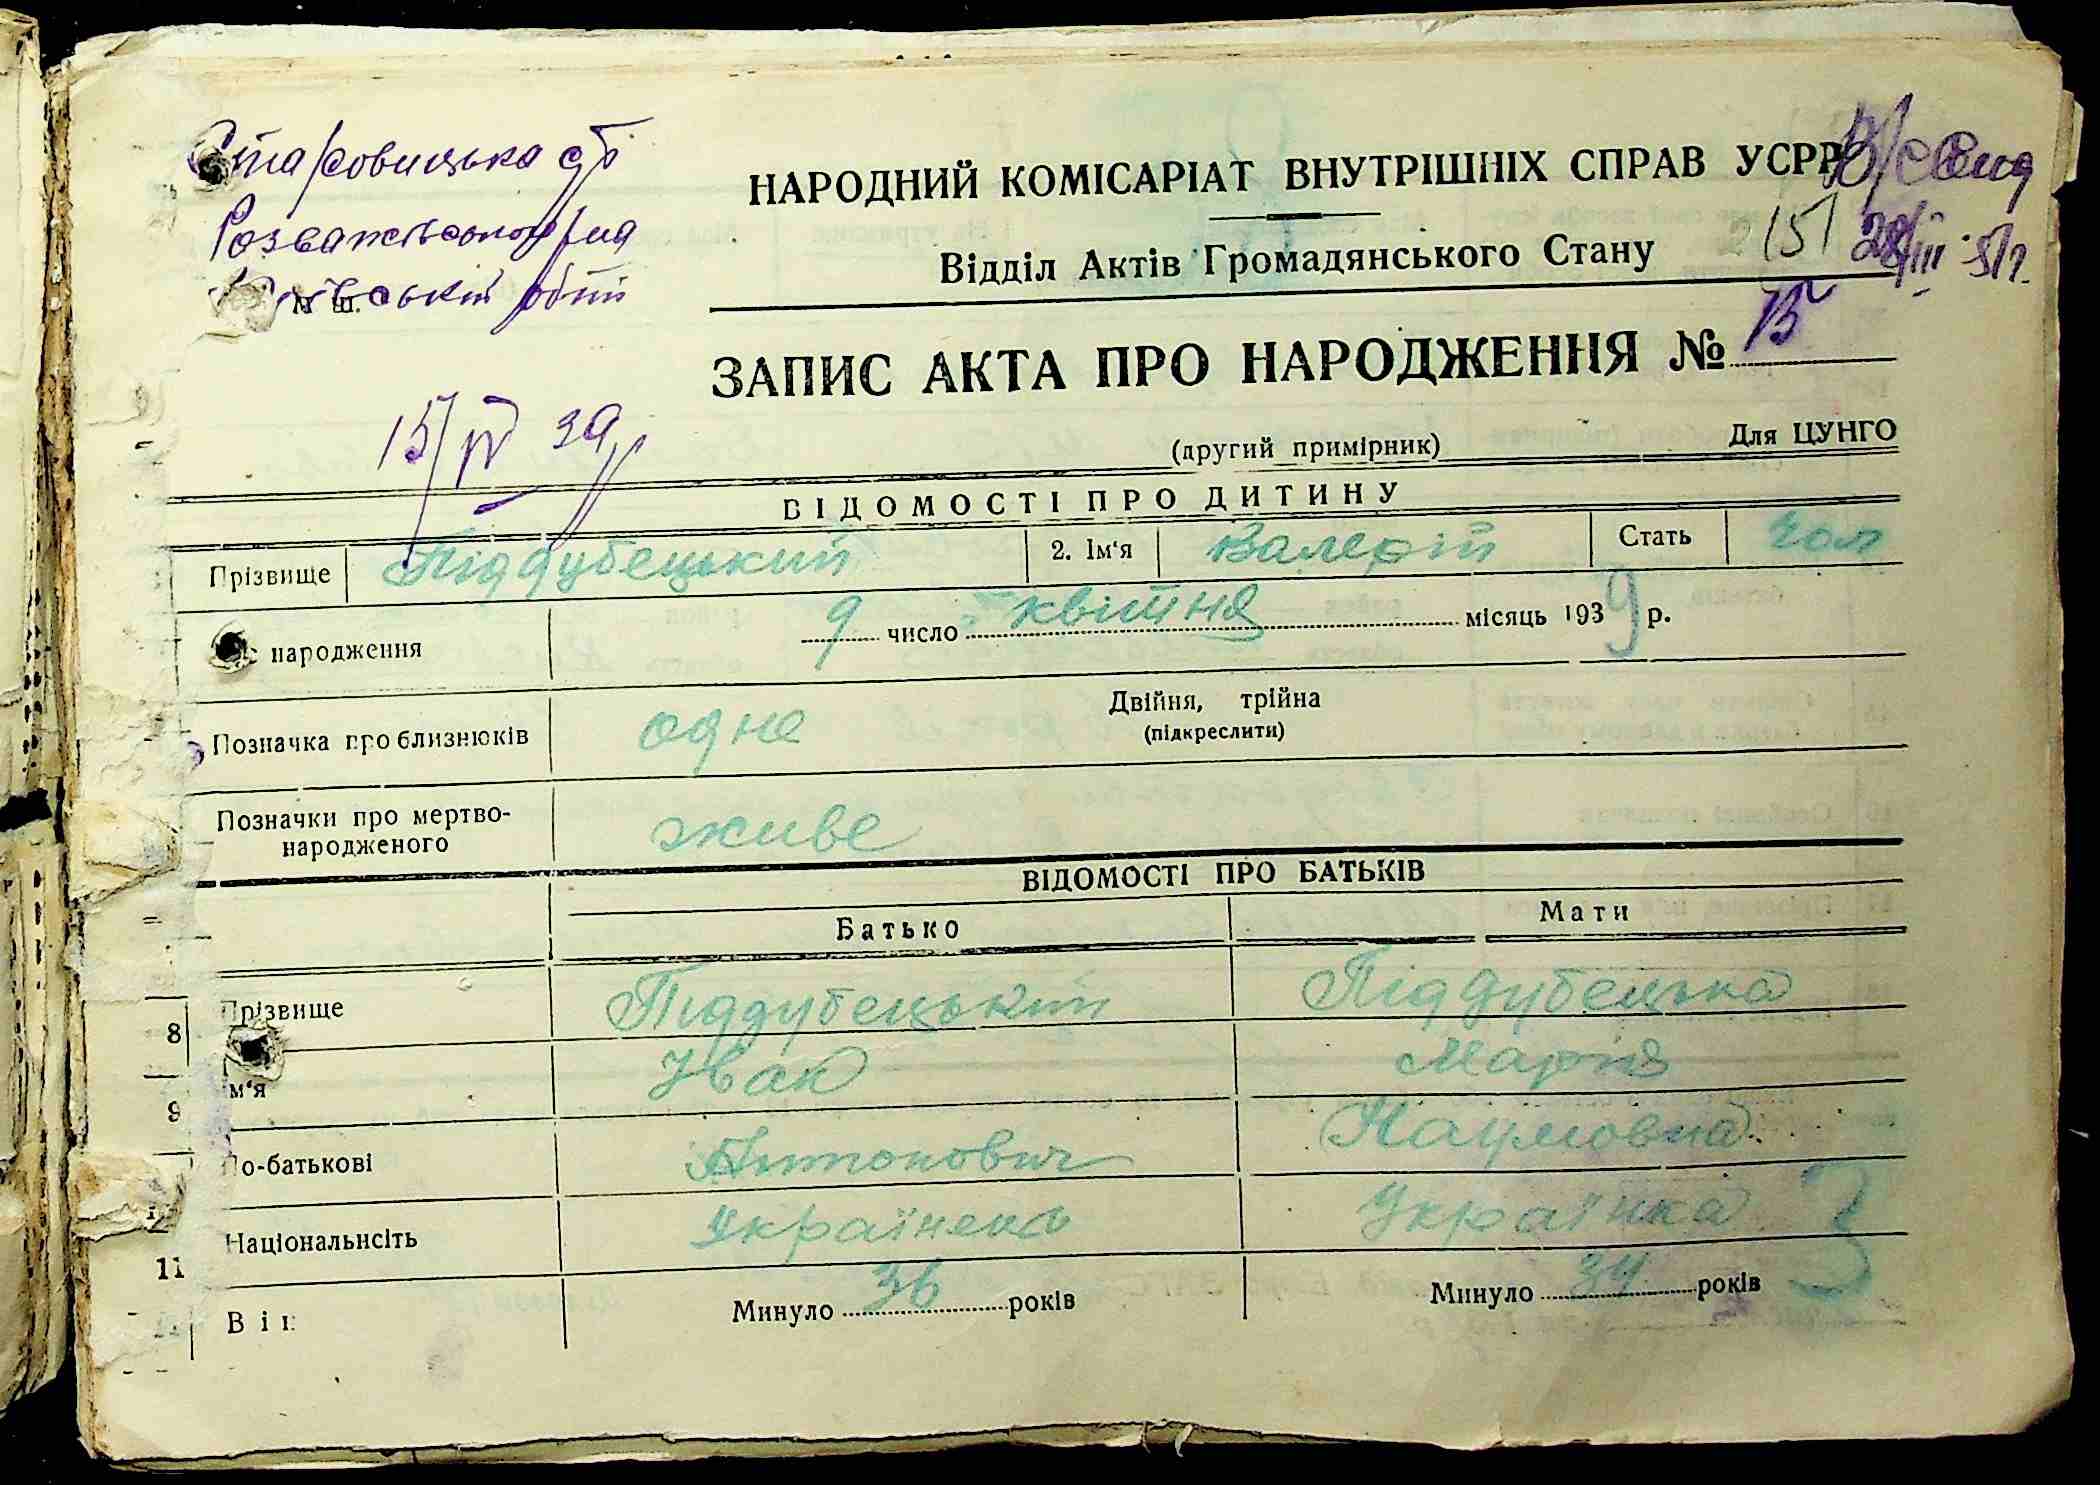 Старовицька с/р
Розважівського р/на
Київській обл
М. Ш.
НАРОДНИЙ КОМІСАРІАТ ВНУТРІШНІХ СПРАВ УСРР
Відділ Актів Громадянського Стану
28/III 51 г.
ЗАПИС АКТА ПРО НАРОДЖЕННЯ № 15
15/IV 39
(другий примірник) Для ЦУНГО
ВІДОМОСТІ ПРО ДИТИНУ
Прізвище Піддубецький 2. Ім‘я Валерій Стать чол
народження 9 число квітня місяць 1939 р.
Позначка про близнюків одне Двійня, трійна
(підкреслити)
Позначки про мертво-
народженого живе
ВІДОМОСТІ ПРО БАТЬКІВ
Батько Мати
8 Прізвище Піддубецький Піддубецька
9 Ім‘я Іван Марія
По-батькові Антонович Наумовна
11 Національність Українець Українка
Вік Минуло 36 років Минуло 34 років
3